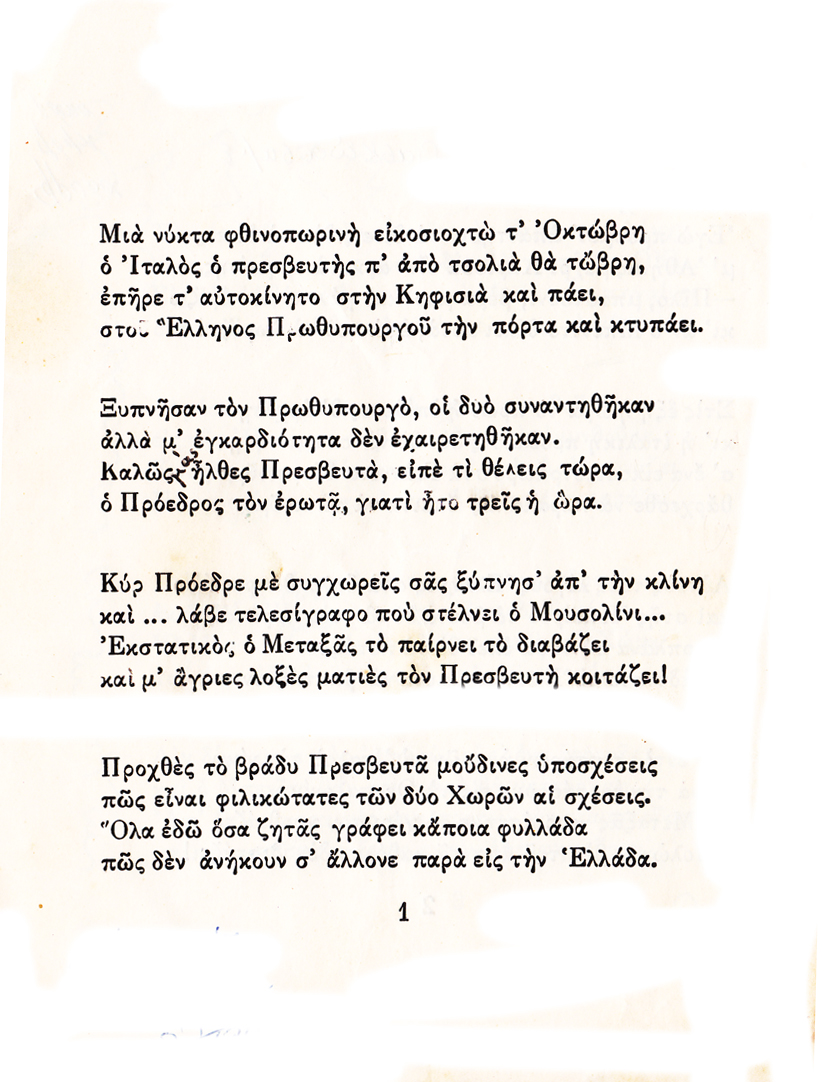 Μιὰ νύκτα φθινοπωρινὴ εἰκοσιοχτὼ τ' Ὀκτώβρη
ὁ Ἰταλὸς ὁ πρεσβευτὴς π' ἀπὸ τσολιὰ θὰ τὤβρη,
ἐπῆρε τ' αὐτοκίνητο στὴν Κηφισιὰ καὶ πάει,
στοῦ Ἕλληνος Πρωθυπουργοῦ τὴν πόρτα καὶ κτυπάει.
Ξυπνῆσαν τὸν Πρωθυπουργὸ, οἱ δυὸ συναντηθῆκαν
ἀλλὰ μ' ἐγκαρδιότητα δὲν ἐχαιρετηθῆκαν.
Καλῶς ἦλθες Πρεσβευτὰ, εἰπὲ τὶ θέλεις τώρα,
ὁ Πρόεδρος τὸν ἐρωτᾷ, γιατὶ ἦτο τρεῖς ἡ ὥρα.
Κύρ Πρόεδρε μὲ συγχωρεῖς σᾶς ξύπνησ' ἀπ' τὴν κλίνη
καὶ ... λάβε τελεσίγραφο ποὺ στέλνει ὁ Μουσολίνι...
Ἐκστατικὸς ὁ Μεταξᾶς τὸ παίρνει τὸ διαβάζει
καὶ μ' ἄγριες λοξὲς ματιὲς τὸν Πρεσβευτὴ κοιτάζει!
Προχθὲς τὸ βράδυ Πρεσβευτᾶ μοὔδινες ὑποσχέσεις
πῶς εἶναι φιλικώτατες τῶν δύο Χωρῶν αἱ σχέσεις.
Ὅλα ἐδῶ ὅσα ζητᾶς γράφει κἄποια φυλλάδα
πῶς δὲν ἀνήκουν σ' ἄλλονε παρὰ εἰς τὴν Ἑλλάδα.
1